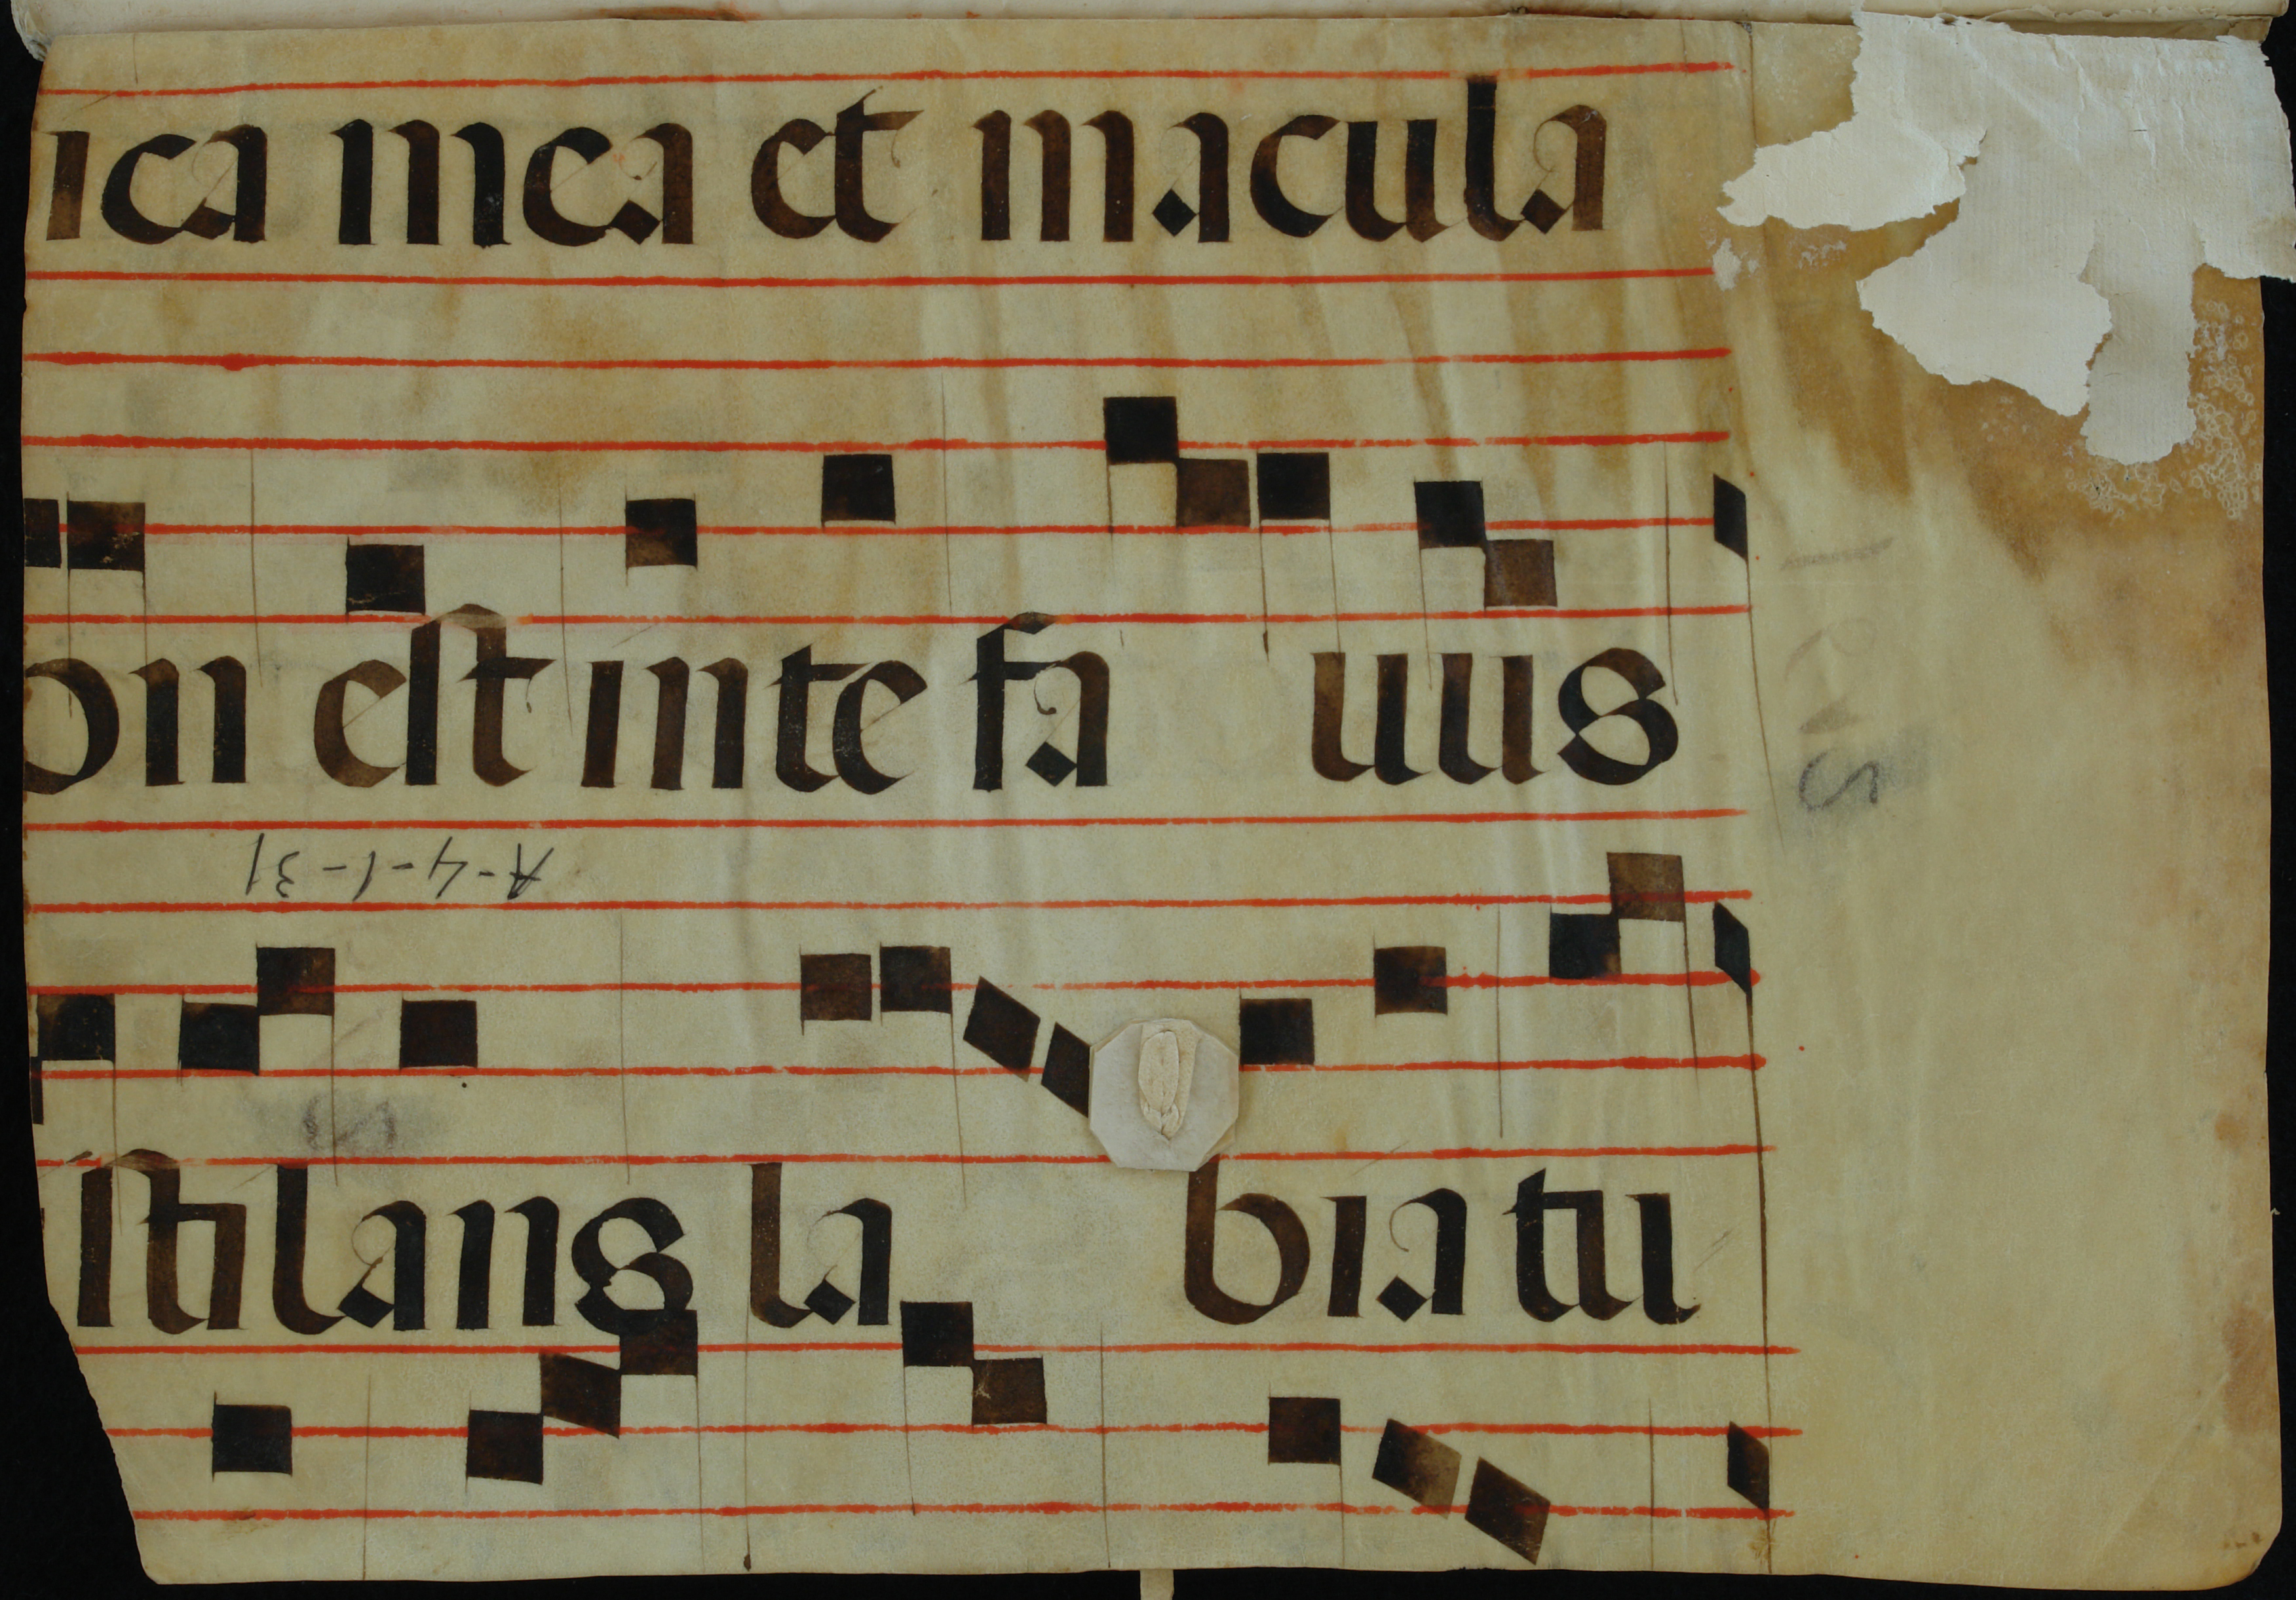 ica mea et macula
on est in te fa uus
A-4-1-31
stilans la bia tu